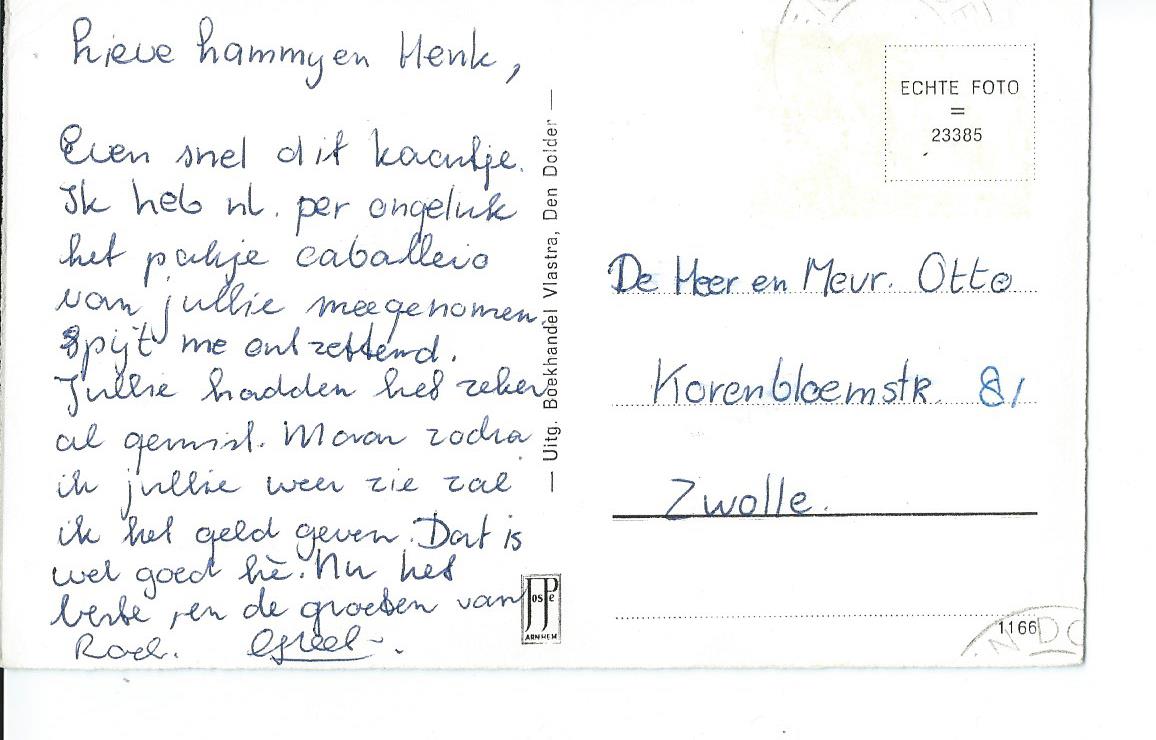 Lieve Lammy en Henk,
Even snel dit kaartje.
Ik heb nl. per ongeluk
het pakje caballero
van jullie meegenomen.
Spijt me ontzettend.
Jullie hadden het zeker
al gemist. Maar zodra
ik jullie weer zie zal
ik het geld geven. Dat is
wel goed hè. Nu het
beste, en de groeten van
Roel. Greet.
— Uitg. Boekhandel Vlastra, Den Dolder —
JosPé
ARNHEM
ECHTE FOTO
=
23385
De Heer en Mevr. Otto
Korenbloemstr. 81
Zwolle.
1166